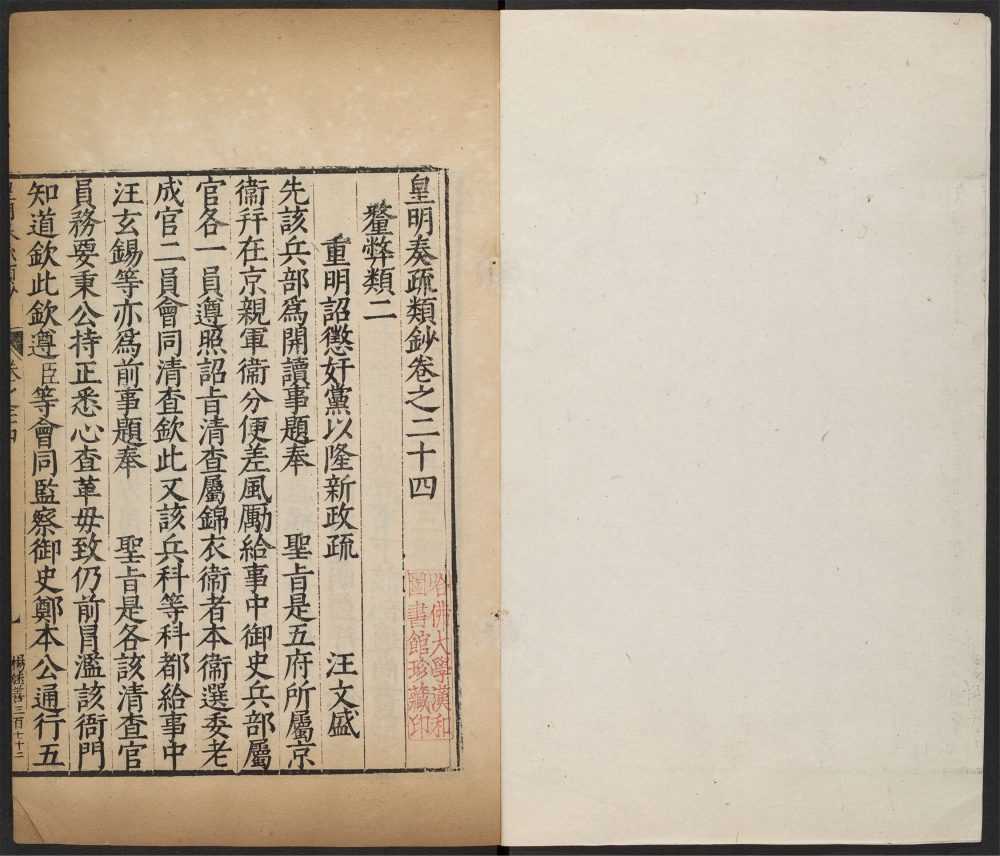 皇明奏疏類鈔卷之二十四
釐弊類二
重明詔懲奸黨以隆新政疏 汪文盛
先該兵部為開讀事題奉 聖旨是五府所屬京
衞并在京親軍衞分便差風勵給事中御史兵部屬
官各一員遵照詔旨清查屬錦衣衞者本衞選委老
成官二員會同清查欽此又該兵科等科都給事中
汪玄錫等亦為前事題奉 聖旨是各該清查官
員務要秉公持正悉心查革毋致仍前冒濫該衙門
知道欽此欽遵臣等會同監察御史鄭本公通行五
三百七十二
哈佛大學漢和
圖書館珍藏印